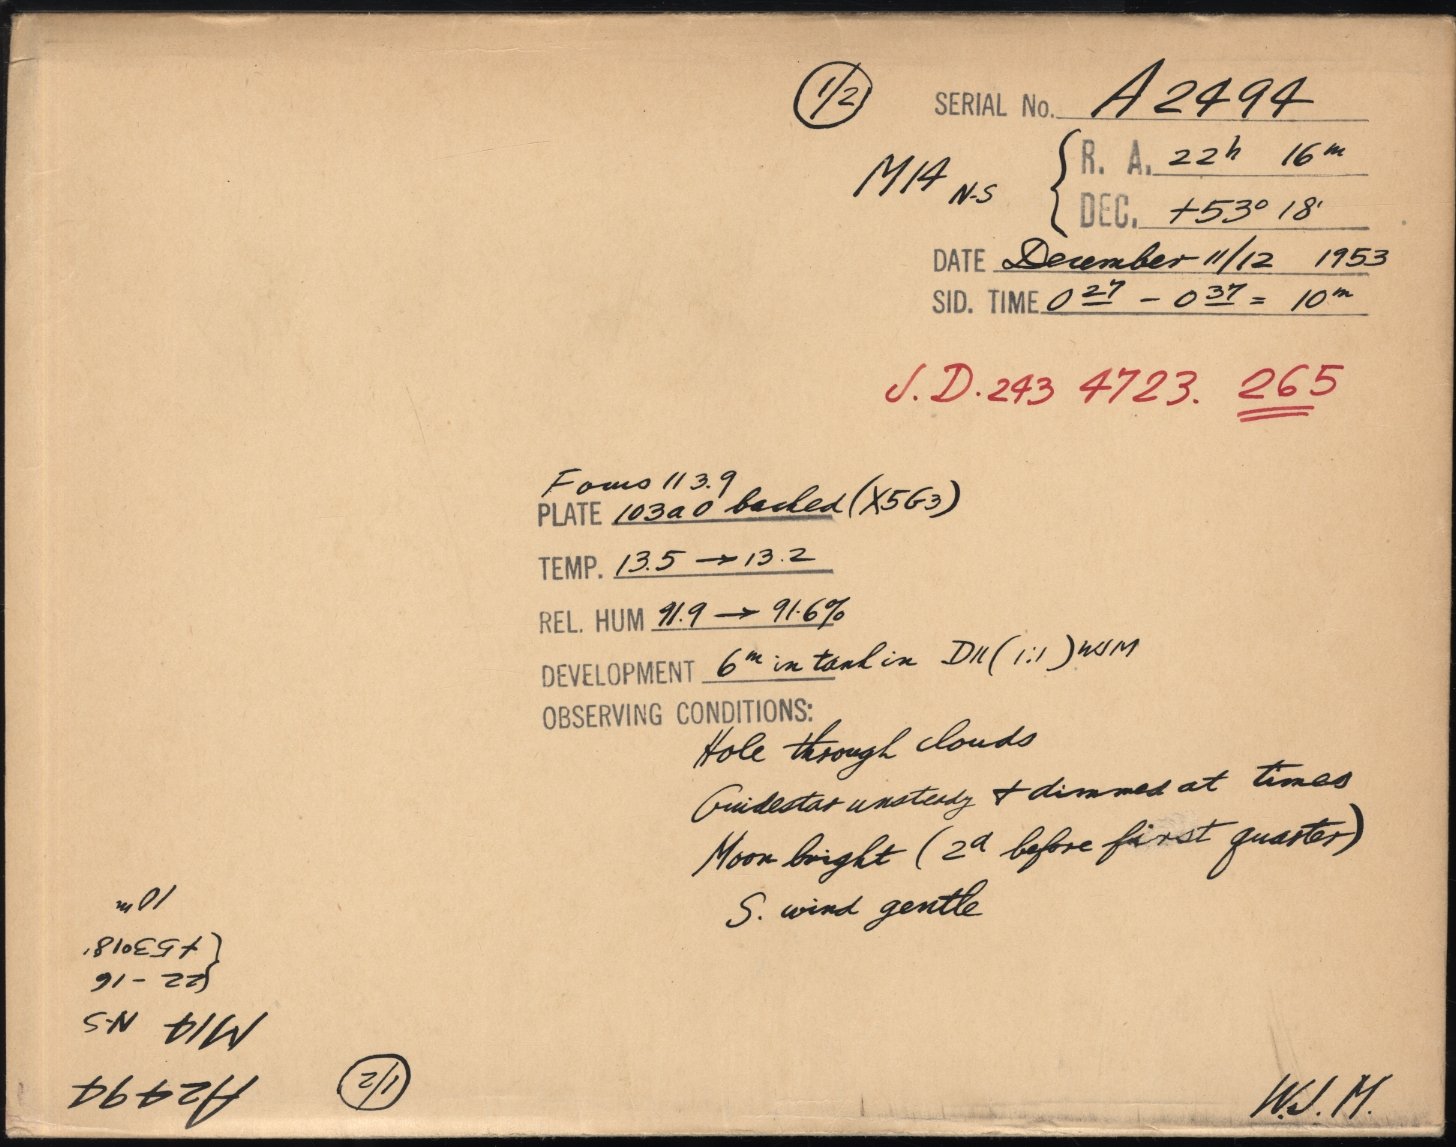 1/2
SERIAL No. A2494
M14 N-S
R. A. 22h 16m
DEC. +53° 18'
DATE December 11/12 1953
SID. TIME 0 27 - 0 37 = 10m
J.D. 243 4723. 265
Focus 113.9
PLATE 103a0 backed (X5G3)
TEMP. 13.5 → 13.2
REL. HUM 91.9 → 91.6%
DEVELOPMENT 6m in tank in D11 (1:1) WJM
OBSERVING CONDITIONS:
Hole through clouds
Guidestar unsteady & dimmed at times
Moon bright (2d before first quarter)
S. wind gentle
W.J.M.
1/2
A2494
M14 N-S
22 - 16
+53°18'
10m